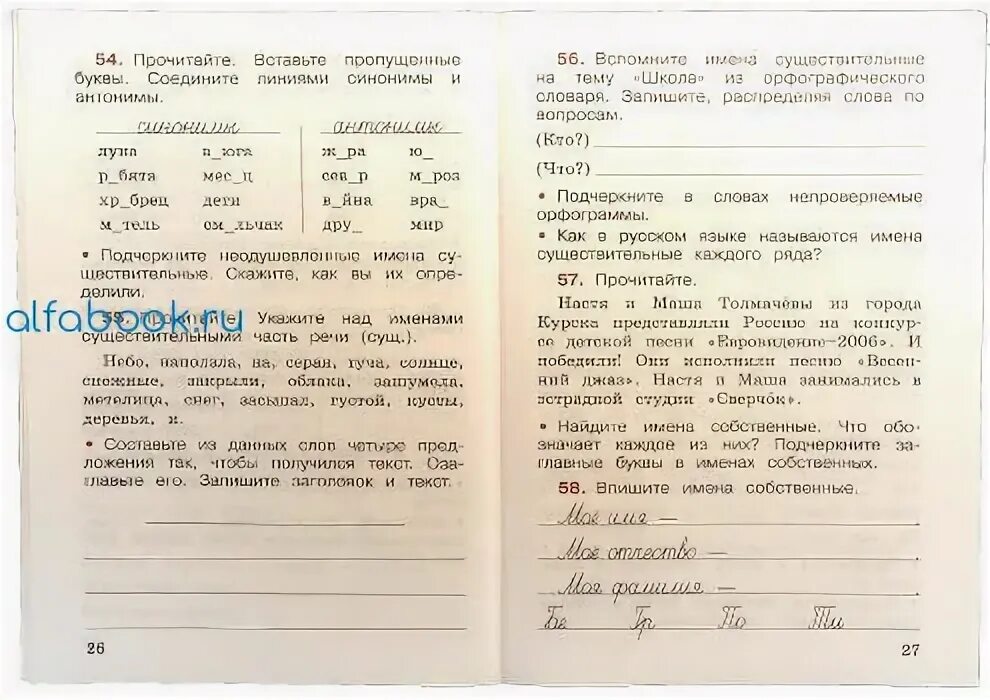 54. Прочитайте. Вставьте пропущенные
буквы. Соедините линиями синонимы и
антонимы.
синонимы антонимы
луна в_юга ж_ра ю_
р_бята мес_ц сев_р м_роз
хр_брец дети в_йна вра_
м_тель см_льчак дру_ мир
• Подчеркните неодушевлённые имена су-
ществительные. Скажите, как вы их опре-
делили.
alfabook.ru
55. Прочитайте. Укажите над именами
существительными часть речи (сущ.).
Небо, наползла, на, серая, туча, солнце,
снежные, закрыли, облака, зашумела,
метелица, снег, засыпал, густой, кусты,
деревья, и.
• Составьте из данных слов четыре пред-
ложения так, чтобы получился текст. Оза-
главьте его. Запишите заголовок и текст.
26
56. Вспомните имена существительные
на тему «Школа» из орфографического
словаря. Запишите, распределяя слова по
вопросам.
(Кто?)
(Что?)
• Подчеркните в словах непроверяемые
орфограммы.
• Как в русском языке называются имена
существительные каждого ряда?
57. Прочитайте.
Настя и Маша Толмачёвы из города
Курска представляли Россию на конкур-
се детской песни «Евровидение-2006». И
победили! Они исполнили песню «Весен-
ний джаз». Настя и Маша занимались в
эстрадной студии «Сверчок».
• Найдите имена собственные. Что обо-
значает каждое из них? Подчеркните за-
главные буквы в именах собственных.
58. Впишите имена собственные.
Моё имя — .
Моё отчество — .
Моя фамилия — .
Бе Гр По Ти
27